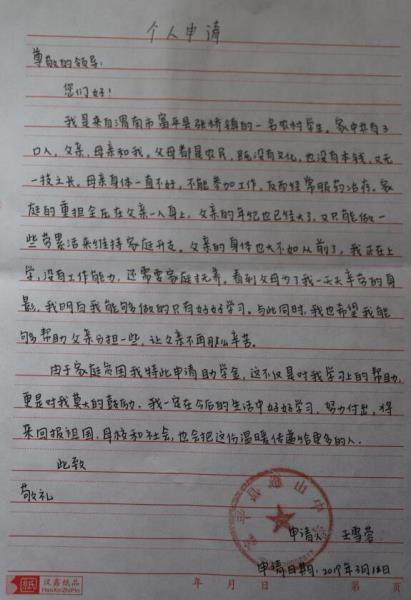 个人申请
尊敬的领导:
您们好!
我是来自渭南市富平县张桥镇的一名农村学生。家中共有3
口人，父亲，母亲和我。父母都是农民，既没有文化，也没有本钱，又无
一技之长。母亲身体一直不好，不能参加工作，反而经常服药治疗。家
庭的重担全压在父亲一人身上，父亲的年纪也已经大了，又只能做一
些苦累活来维持家庭开支。父亲的身体也大不如从前了，我正在上
学，没有工作能力，还需要家庭抚养。看到父母为了我一天天辛苦的身
影，我明白我能够做的只有好好学习。与此同时，我也希望我能
够帮助父亲分担一些，让父亲不再那么辛苦。
由于家庭贫困我特此申请助学金，这不仅是对我学习上的帮助，
更是对我莫大的鼓励。我一定在今后的生活中好好学习，努力付出，将
来回报祖国，母校和社会，也会把这份温暖传递给更多的人。
此致
敬礼
申请人: 王雪蓉
申请日期: 2019年3月18日
汉鑫纸品
HanXinZhiPin
年 月 日 第 页